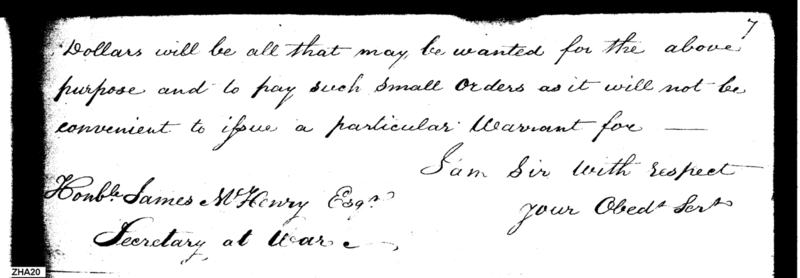 7
Dollars will be all that may be wanted for the above
purpose and to pay such small Orders as it will not be
convenient to issue a particular Warrant for —
I am Sir With respect
your Obedt Sert
Honble James McHenry Esqr
Secretary at War
ZHA20